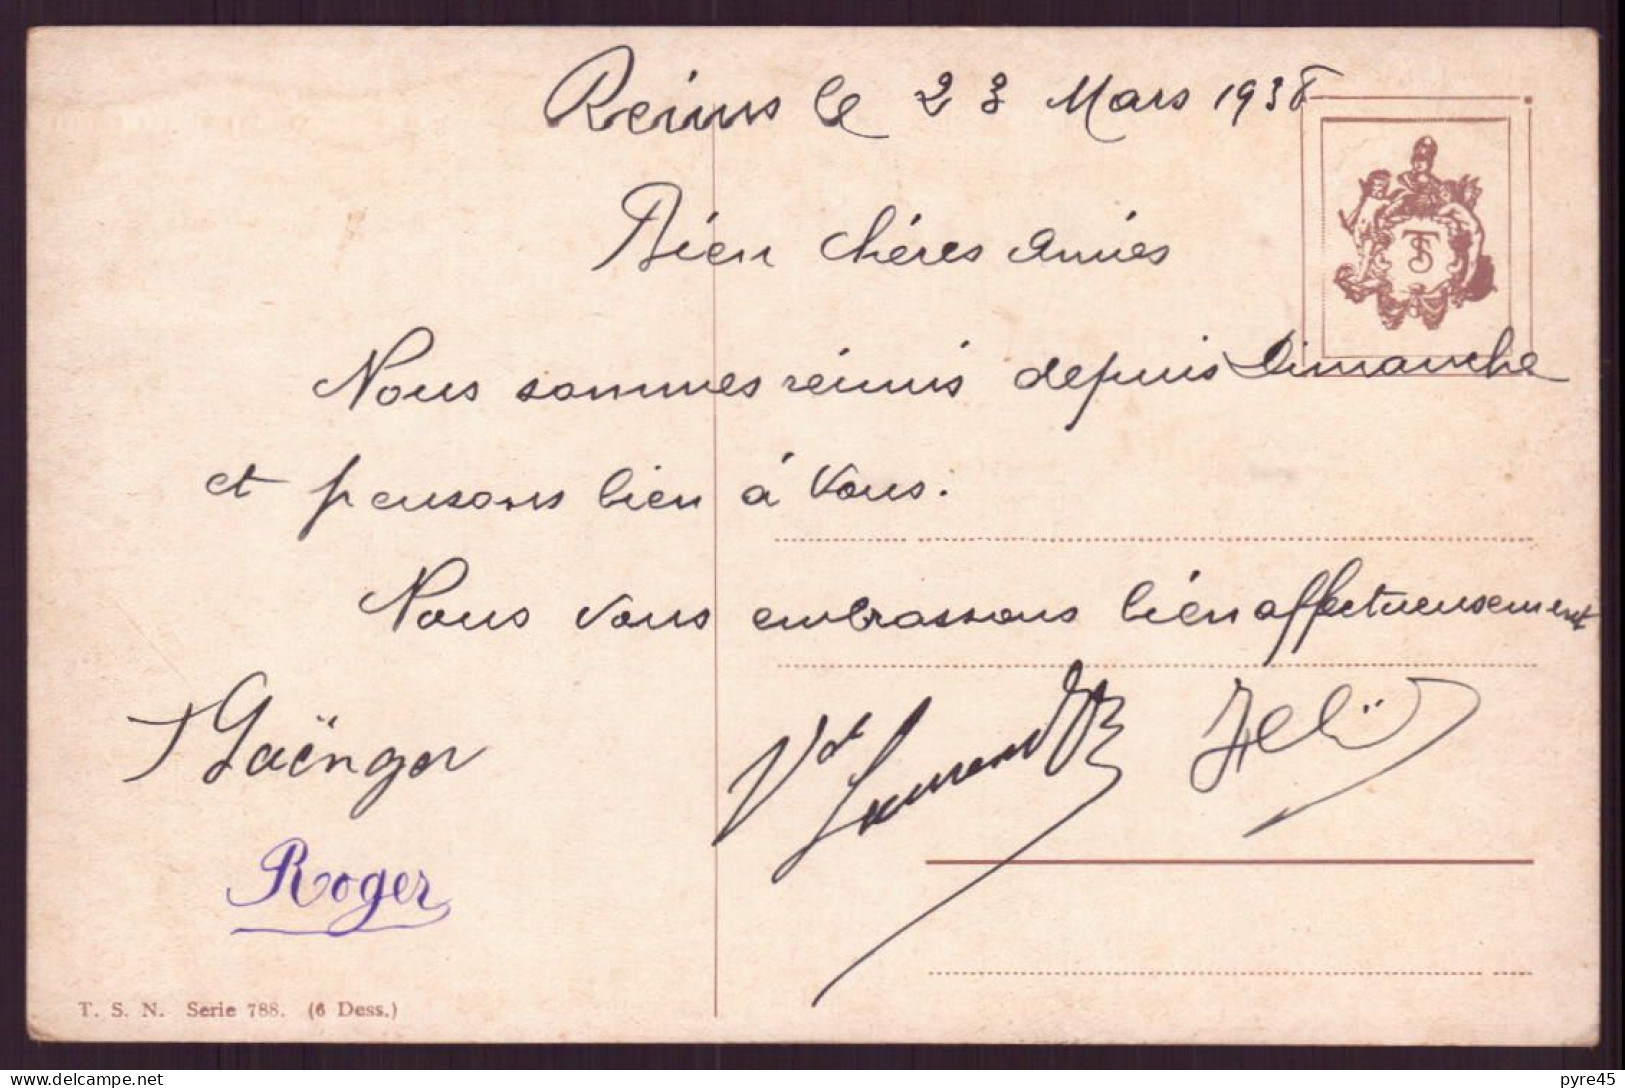 Reims le 23 Mars 1938
Bien chères amies
Nous sommes réunis depuis Dimanche
et pensons bien à vous.
Nous vous embrassons bien affectueusement
Roger
TS
T. S. N. Serie 788. (6 Dess.)
delcampe.net
pyre45